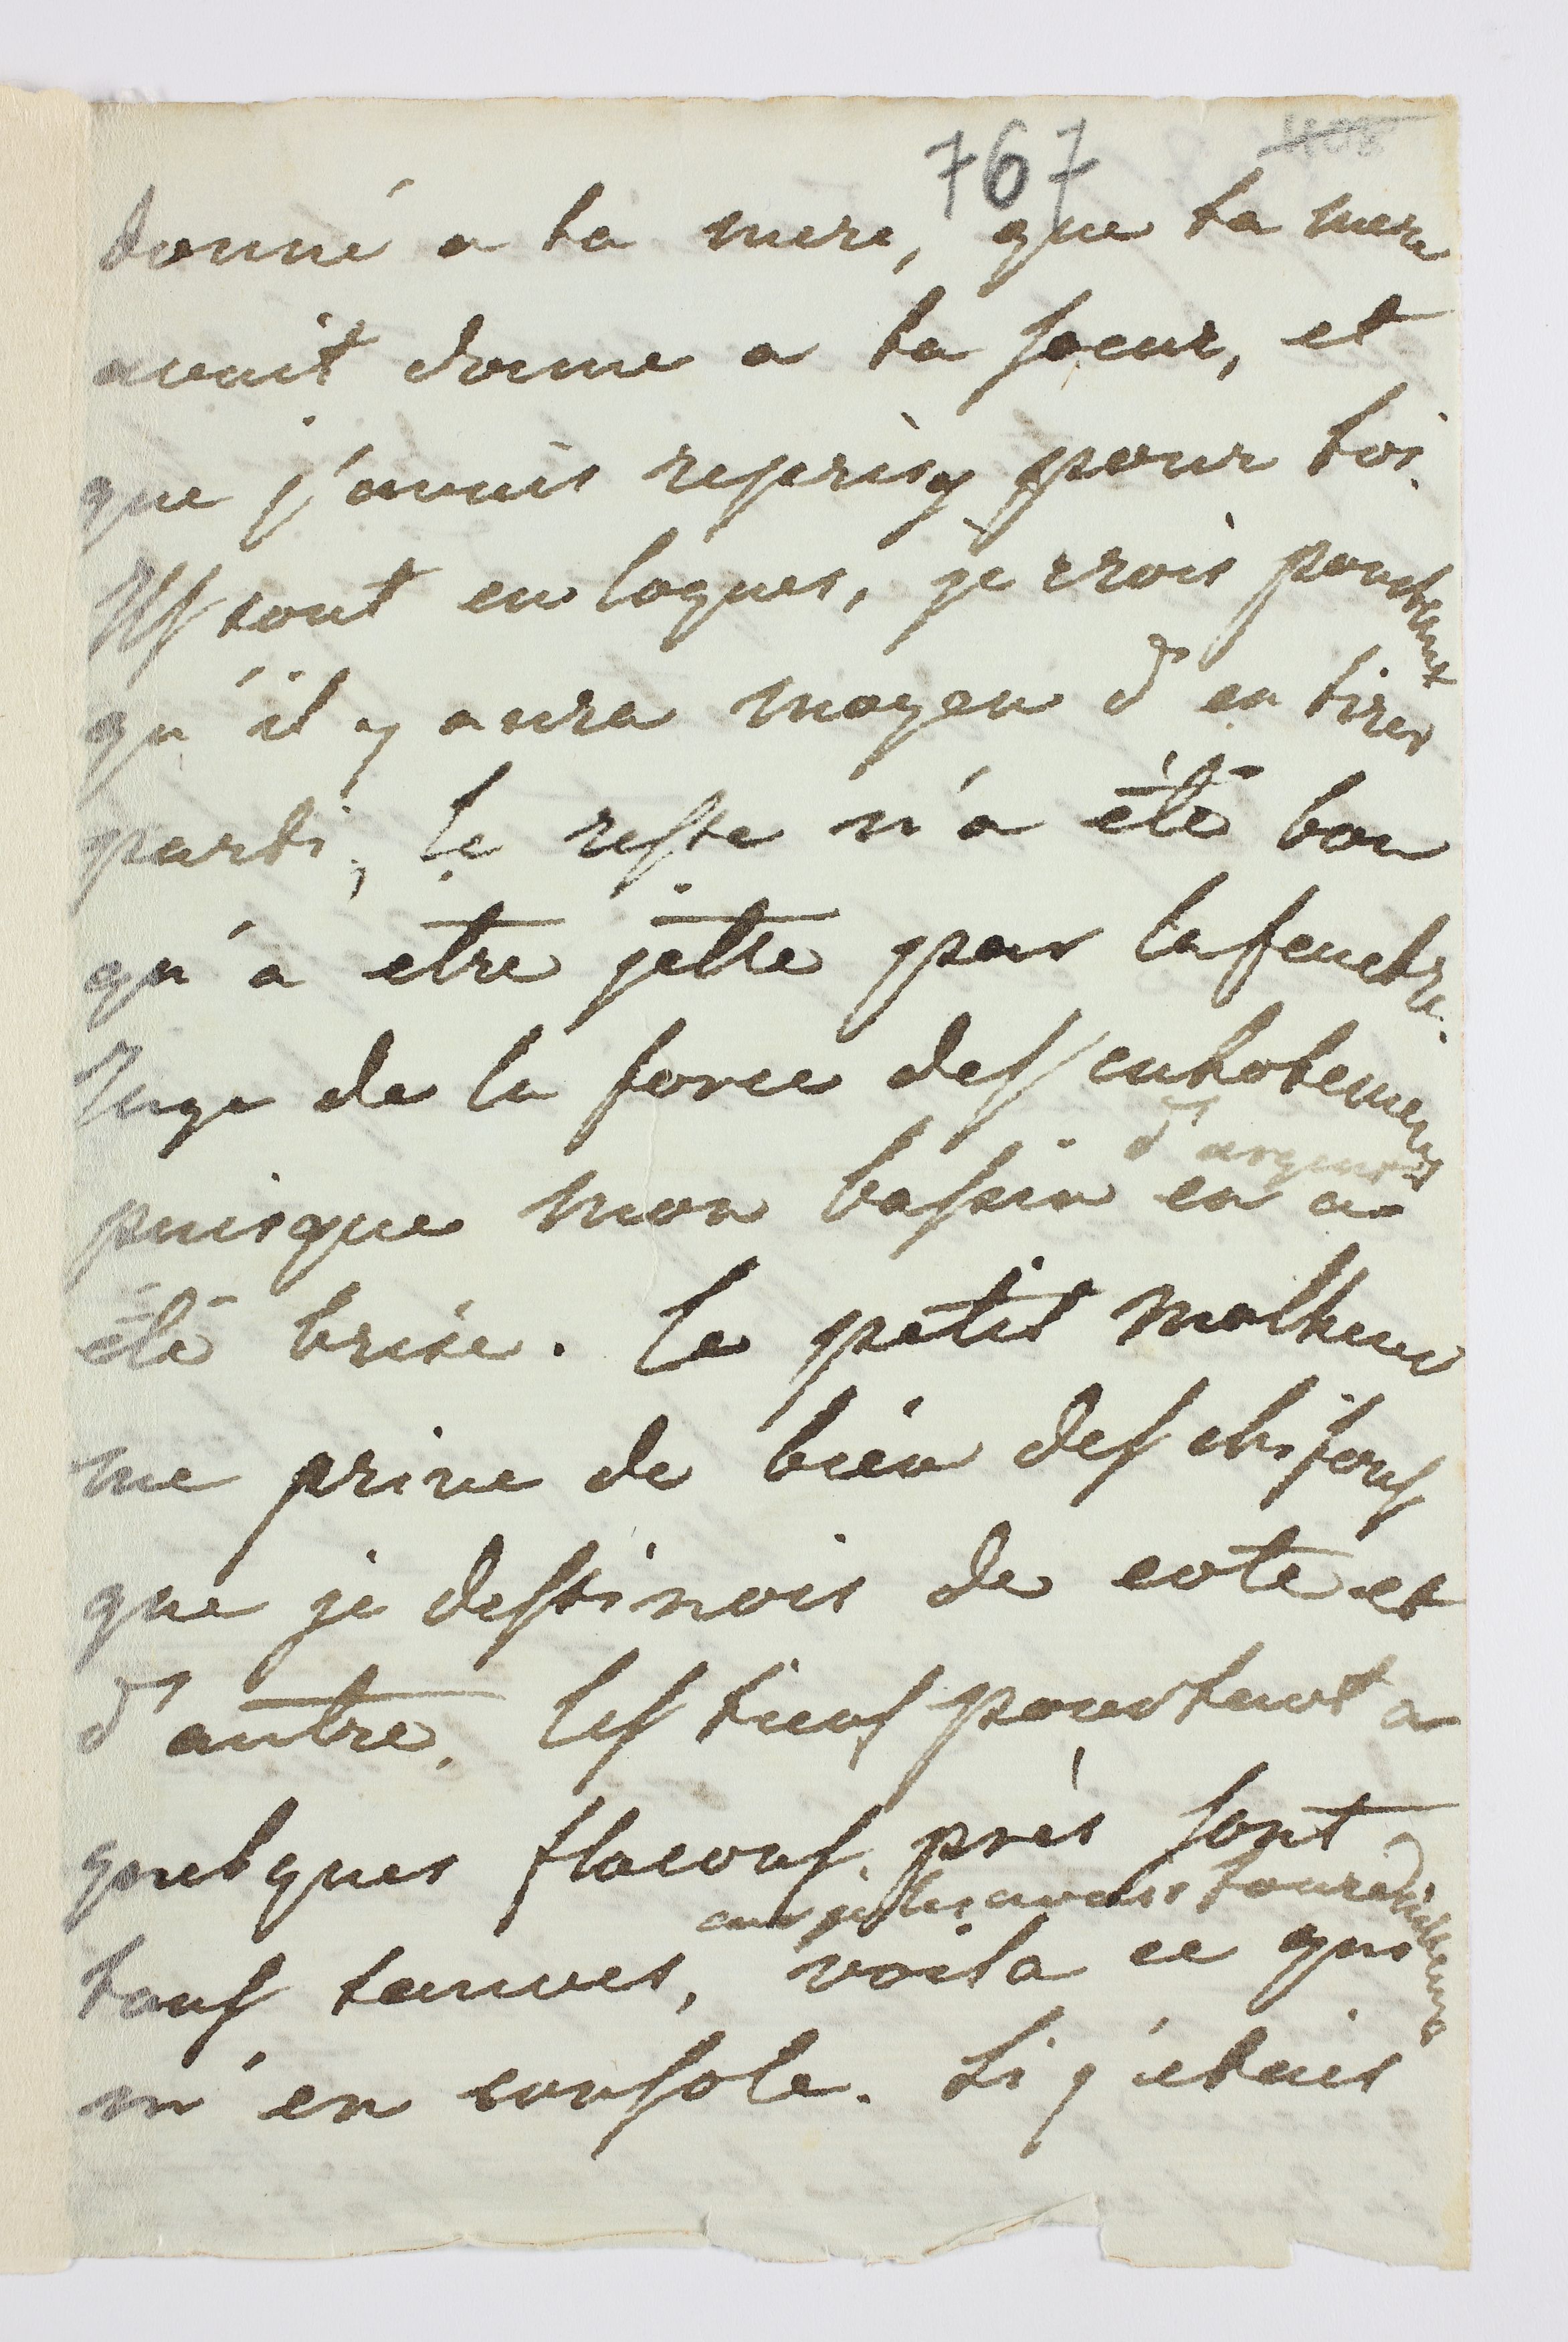 767 408
donné a ta mere, que ta mere
avait donné a ta soeur, et
que j'avais repris pour toi.
Ils sont en loques, je crois pourtant
qu'il y aura moyen d'en tirer
parti, le reste n'a été bon
qu'a etre jetté par la fenetre.
Juge de la force des
puisque mon bassin d'argent en a
été brisé. Ce petit malheur
me prive de bien des chifons
que je destinois de coté et
d'autre. les tiens pourtant a
quelques flacons près sont
tous sauves, car je les avais
voila ce qui
m'en console. Si j'étais